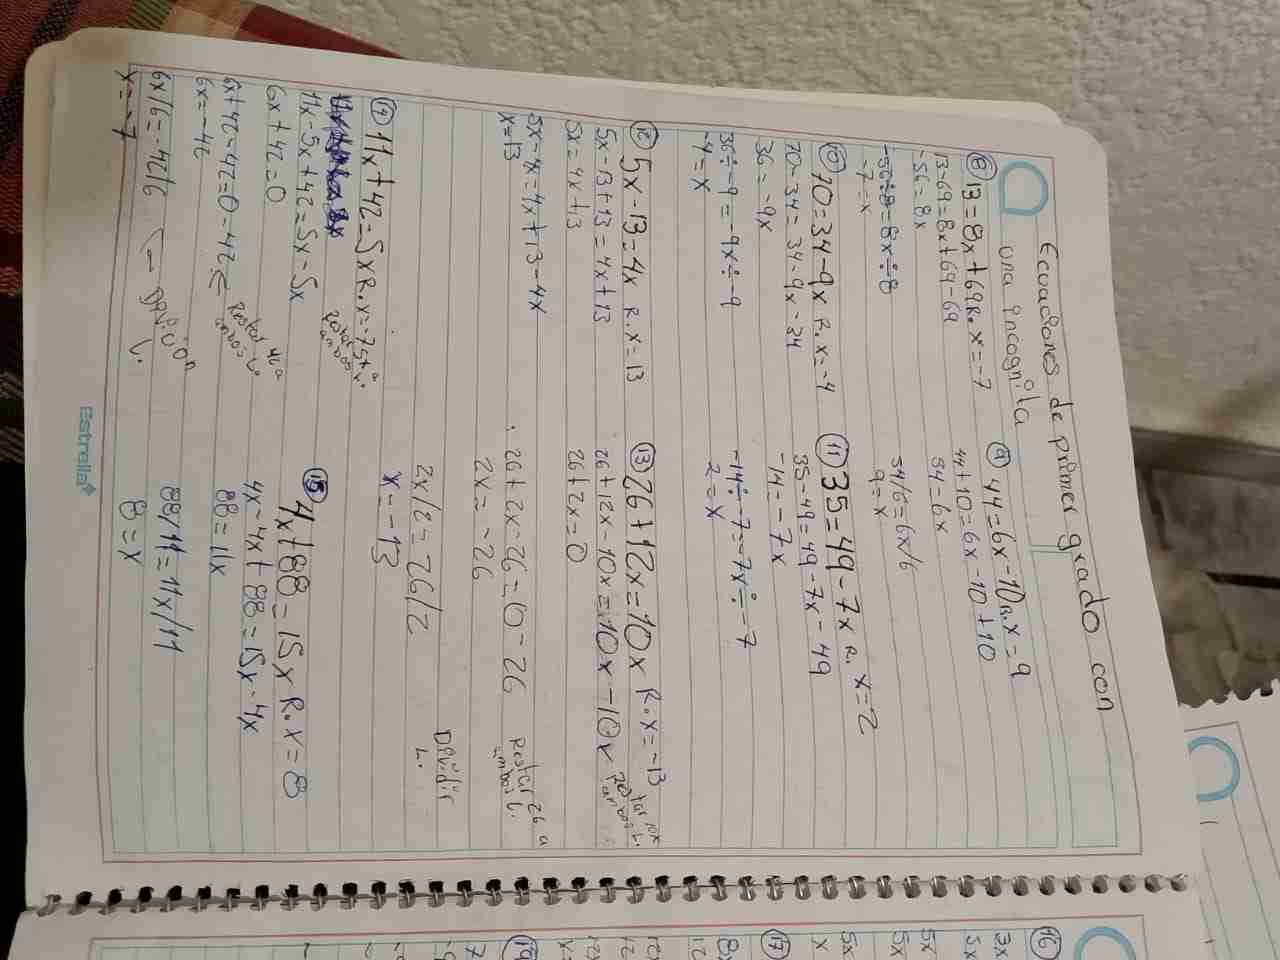 Ecuaciones de primer grado con
una incognita
⑧ 13=8x+69 R. x=-7
13-69=8x+69-69
-56=8x
-56÷8=8x÷8
-7=x
⑨ 44=6x-10 R. x=9
44+10=6x-10+10
54=6x
54/6=6x/6
9=x
⑩ 70=34-9x R. x=-4
70-34=34-9x-34
36=-9x
36÷-9=-9x÷-9
-4=x
⑪ 35=49-7x R. x=2
35-49=49-7x-49
-14=-7x
-14÷-7=-7x÷-7
2=x
⑫ 5x-13=4x R. x=13
5x-13+13=4x+13
5x=4x+13
5x-4x=4x+13-4x
x=13
⑬ 26+12x=10x R. x=-13
26+12x-10x=10x-10x
26+2x=0
26+2x-26=0-26 Restar 26 a
ambos L.
2x=-26
2x/2=26/2 Dividir
L.
x=-13
⑭ 11x+42=5x R. x=-7
11x-5x+42=5x-5x
6x+42=0
6x+42-42=0-42 Restar 42 a
ambos L.
6x=-42
6x/6=-42/6 División
L.
x=-7
⑮ 4x+88=15x R. x=8
4x-4x+88=15x-4x
88=11x
88/11=11x/11
8=x
Estrella
⑯
3x
3x
5x
5x
5x
x
⑰
8x
⑲
7